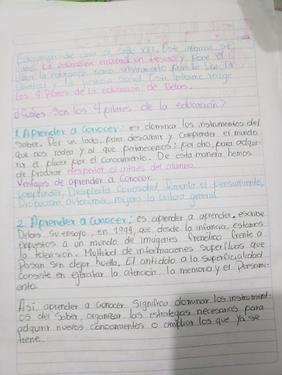 Educación de cara al siglo XXI. Este informe se
La educación encierra un tesoro y pone el
la educación como instrumento para la Paz, la
libertad y la Justicia Social. Este informe surge
los 4 pilares de la educación de Delors.
¿Cuáles Son los 4 pilares de la educación?
1. Aprender a Conocer: es dominar los instrumentos del
Saber. Por un lado, para descubrir y Comprender el mundo
que nos rodea y al que pertenecemos; por otro, para adqui-
rir el placer por el Conocimiento. De esta manera, hemos
de procurar despertar el interés del alumno.
Ventajas de aprender a Conocer.
Comprender, Despierta Curiosidad, fomenta el pensamiento,
Proporciona autonomía, mejora la cultura general
2. Aprender a Conocer: es aprender a aprender, escribe
Delors su ensayo, en 1994, que, desde la infancia, estamos
expuestos a un mundo de imágenes frenético frente a
la televisión. Multitud de informaciones superfluas que
Pasan sin dejar huella. El antídoto a la superficialidad
Consiste en ejercitar la atención, la memoria y el pensami-
ento.
Así, aprender a Conocer Significa dominar los instrument-
os del Saber, organizar las estrategias necesarias para
adquirir nuevos conocimientos o ampliar los que ya se
tiene.